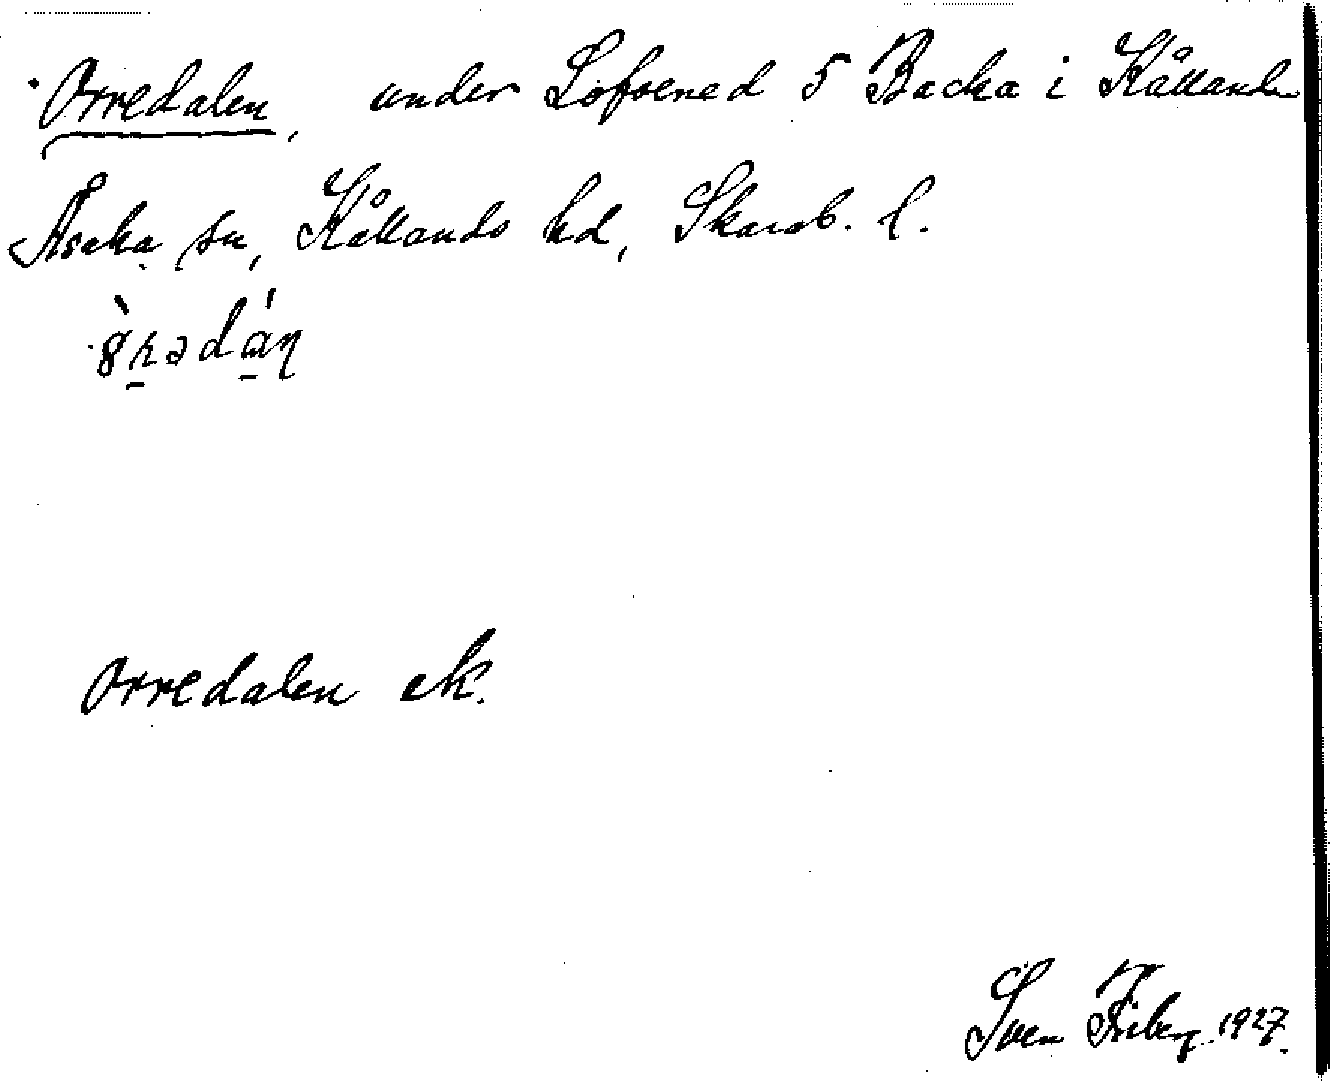 Orredalen, under Lofvened 5 Backa i Kållands
Åsaka sn, Kållands hd, Skarab. l.
Orredalen ek.
Sven Friberg 1927.